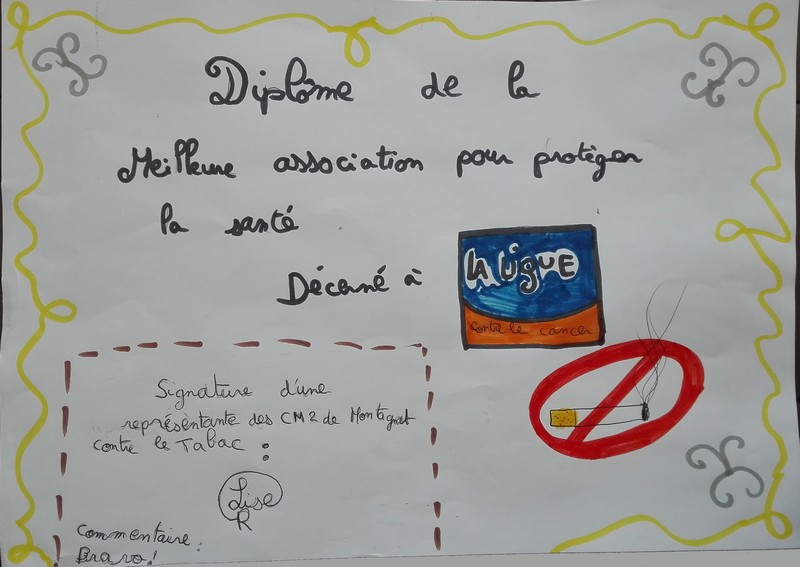 Diplôme de la
Meilleure association pour protéger
la santé
Décerné à
LA LIGUE
contre le cancer
Signature d'une
représentante des CM2 de Montagnat
contre le Tabac :
Lise
R
Commentaire :
Bravo !